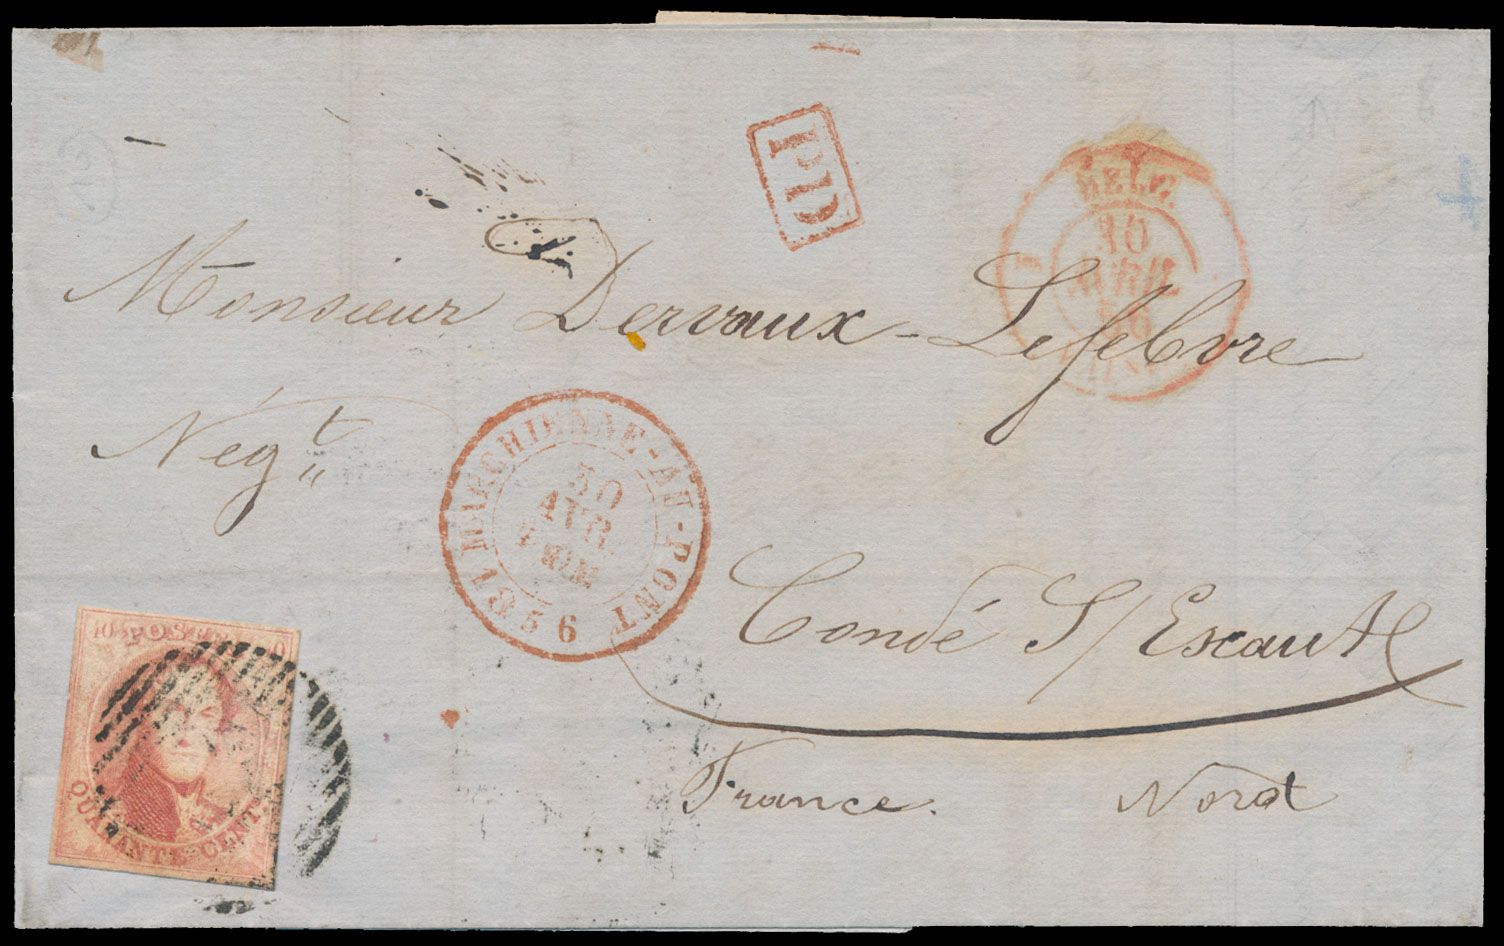 PD
BELG.
30
AVRIL
56
Monsieur Dervaux-Lefebvre
Négt
MARCHIENNE-AU-PONT
30
AVR.
1856
Condé S/Escaut
France. Nord
POSTES
40
QUARANTE CENT.